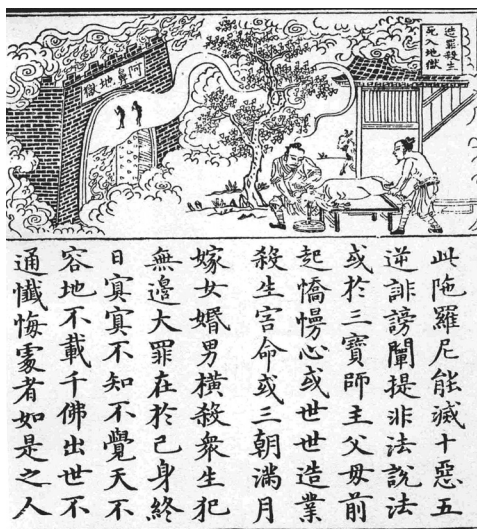 造罪殺生
死入地獄
阿鼻地獄
此陁羅尼能滅十惡五
逆誹謗闡提非法說法
或於三寶師主父母前
起憍慢心或世世造業
殺生害命或三朝滿月
嫁女婚男橫殺衆生犯
無邊大罪在於己身終
日㝠㝠不知不覺天不
容地不載千佛出世不
通懺悔處者如是之人